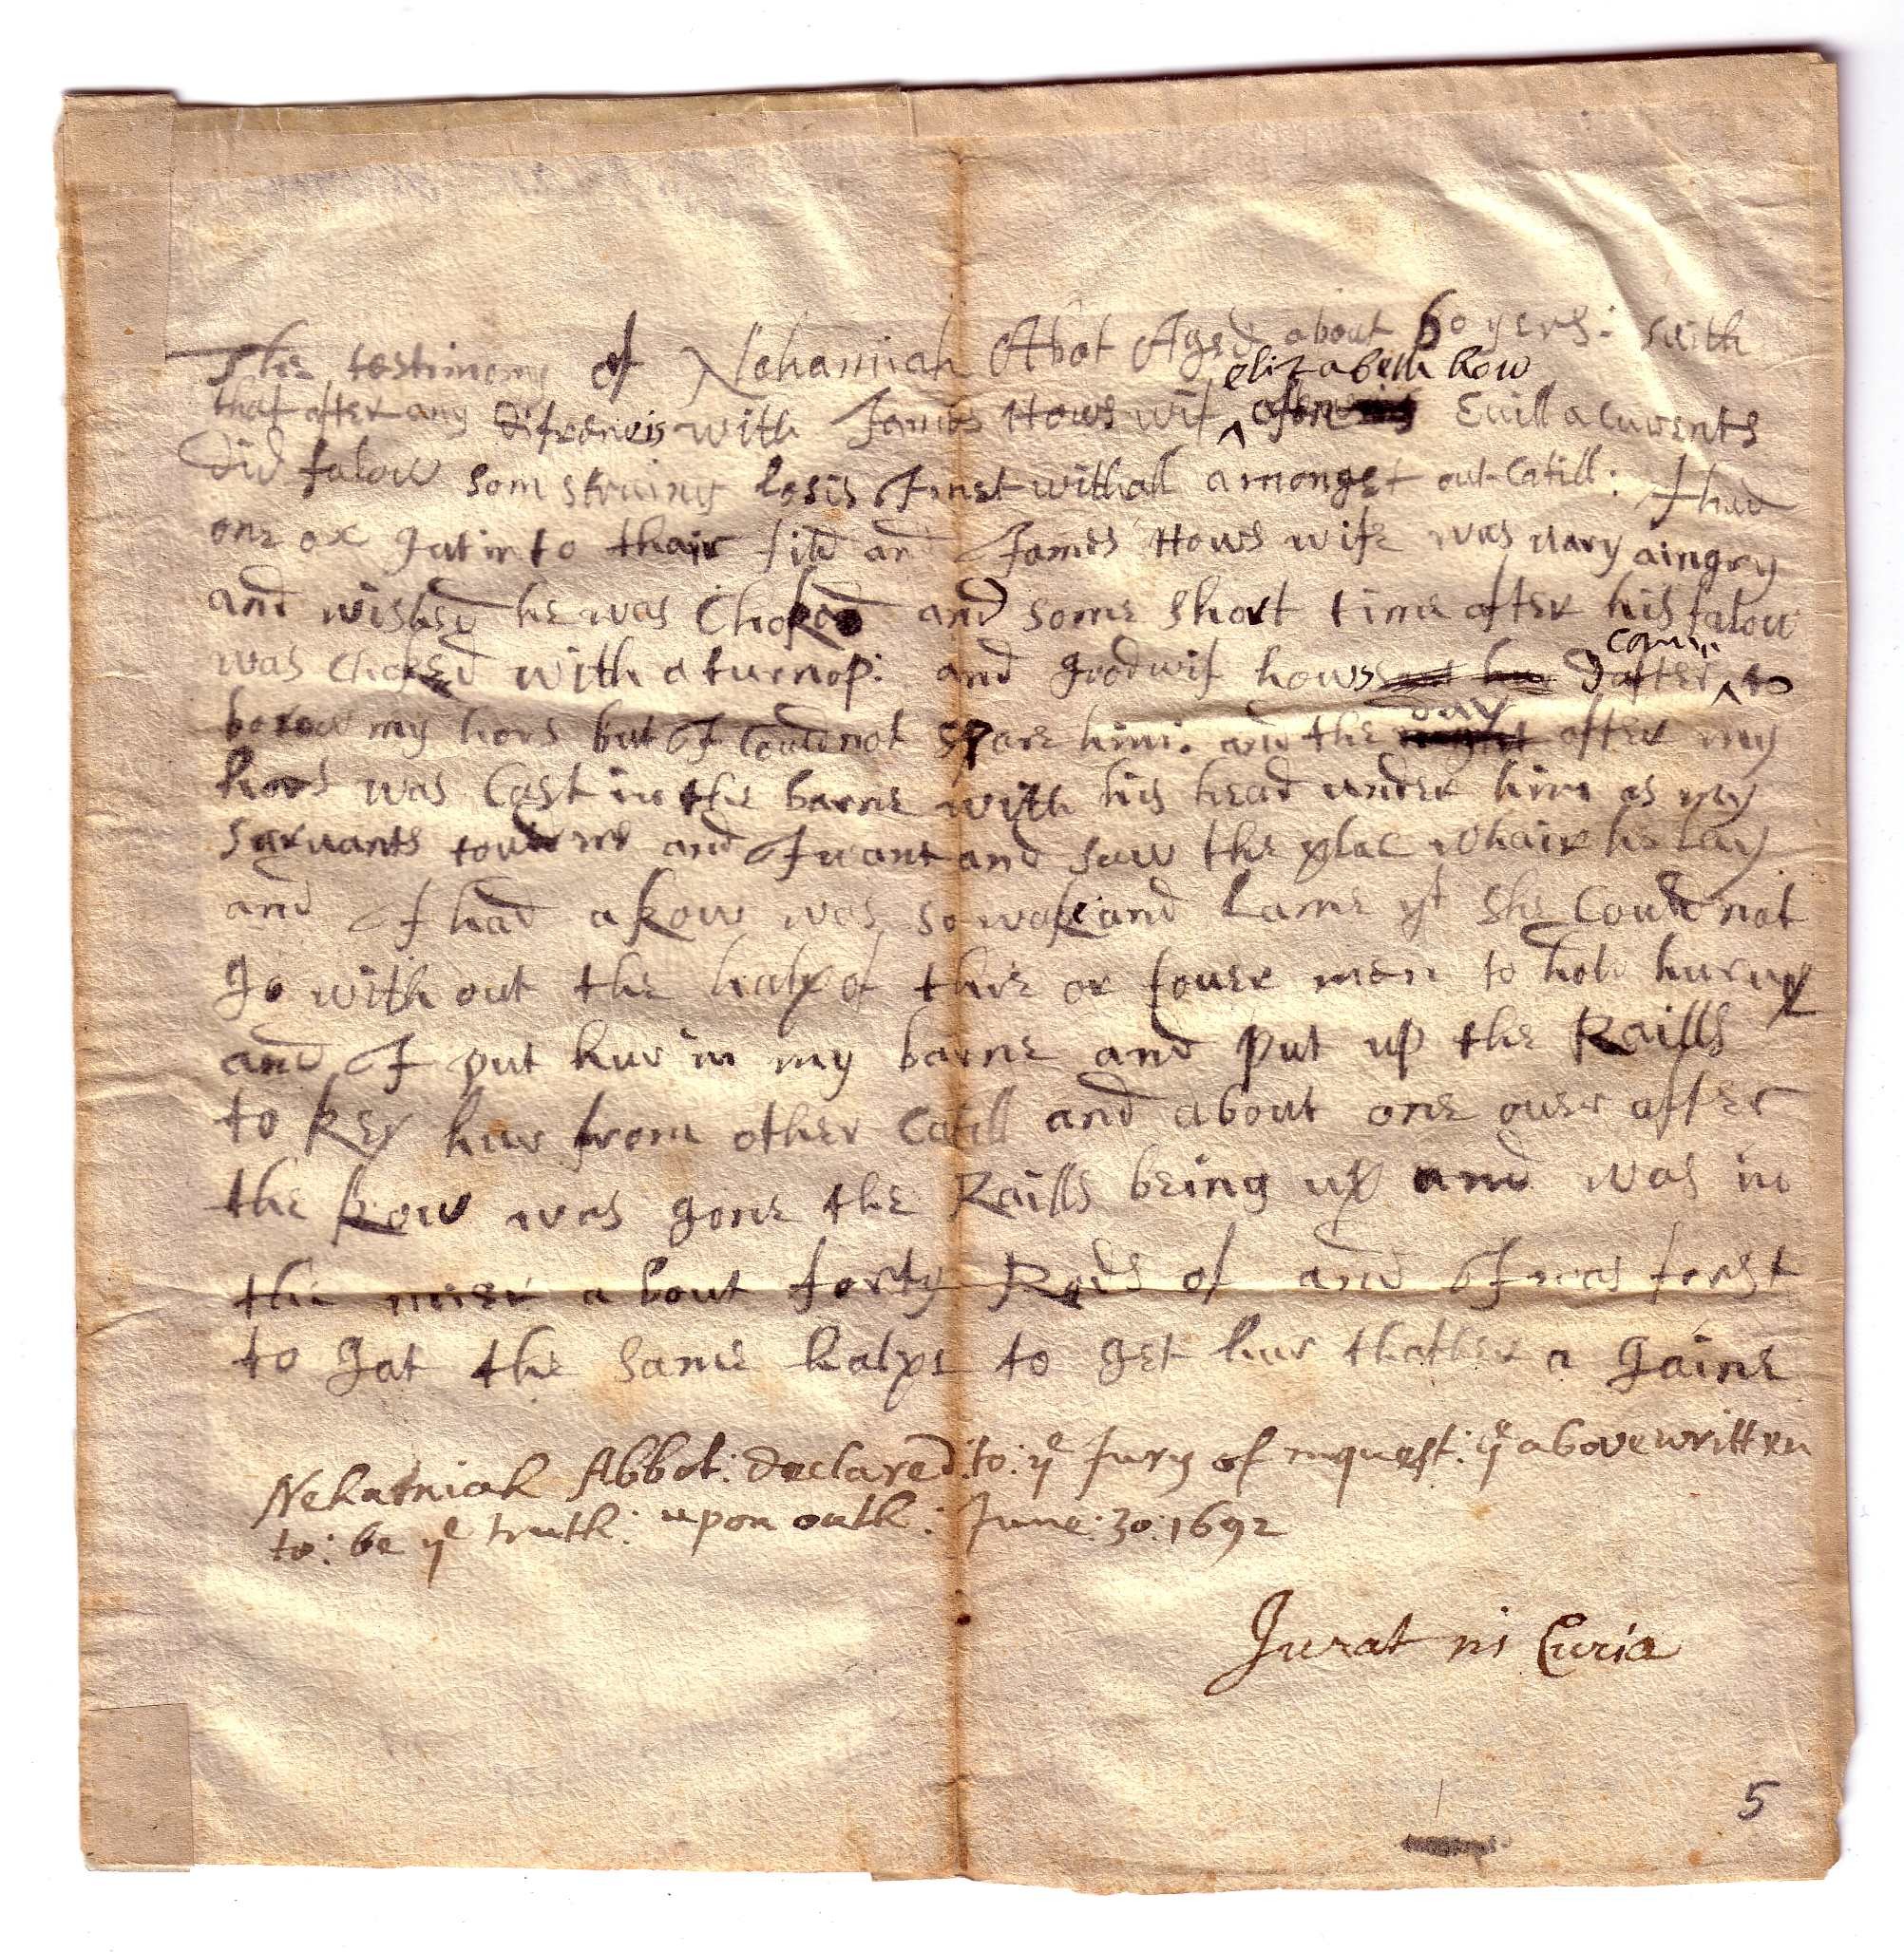 The testimony of Nehamiah Abot Aged about 60 yers: saith
elizabeth how
that after any difrancis with James Hows wif ^ often Euill acurents
did falow som strainy losis Amst withall amongst our Catill: I had
one ox gat in to thair fild and James Hows wife was uary aingry
and wished he was Choked and some short time after his falow
was Choked with a turnop: and goodwif hows dafter ^ to
Comin
borow my hors but I Could not spare him: and the after my
day
hors was Cast in the barne with his head under him as my
saruants tould me and I want and saw the plac whair he lay
and I had a kow was so wake and Lame yt she Could not
go with out the halp of thre or fouer men to hold hur up
and I put hur in my barne and put up the Raills
to kep hur from other Catill and about one ouer after
the kow was gone the Raills being up and was in
the mire about forty Rods of and I was forst
to gat the same halpe to get hur thather a gaine
Nehamiah Abbot: declared: to: ye Jury of inquest: ye above written
to: be ye truth: upon oath: June: 30: 1692
Jurat in Curia
5